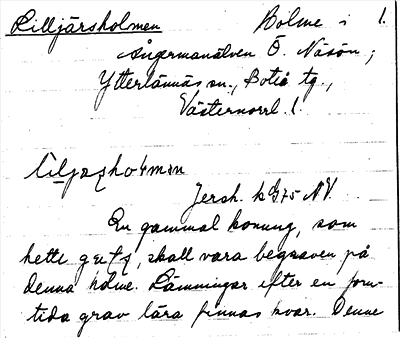 Lilljärsholmen Holme i 1.
Ångermanälven Ö. Näsön;
Ytterlännäs sn., Boteå tg.,
Västernorrl. l.
Jersk. k G75 NV.
En gammal konung, som
hette skall vara begraven på
denna holme. Lämningar efter en forn-
tida grav lära finnas kvar. Denne